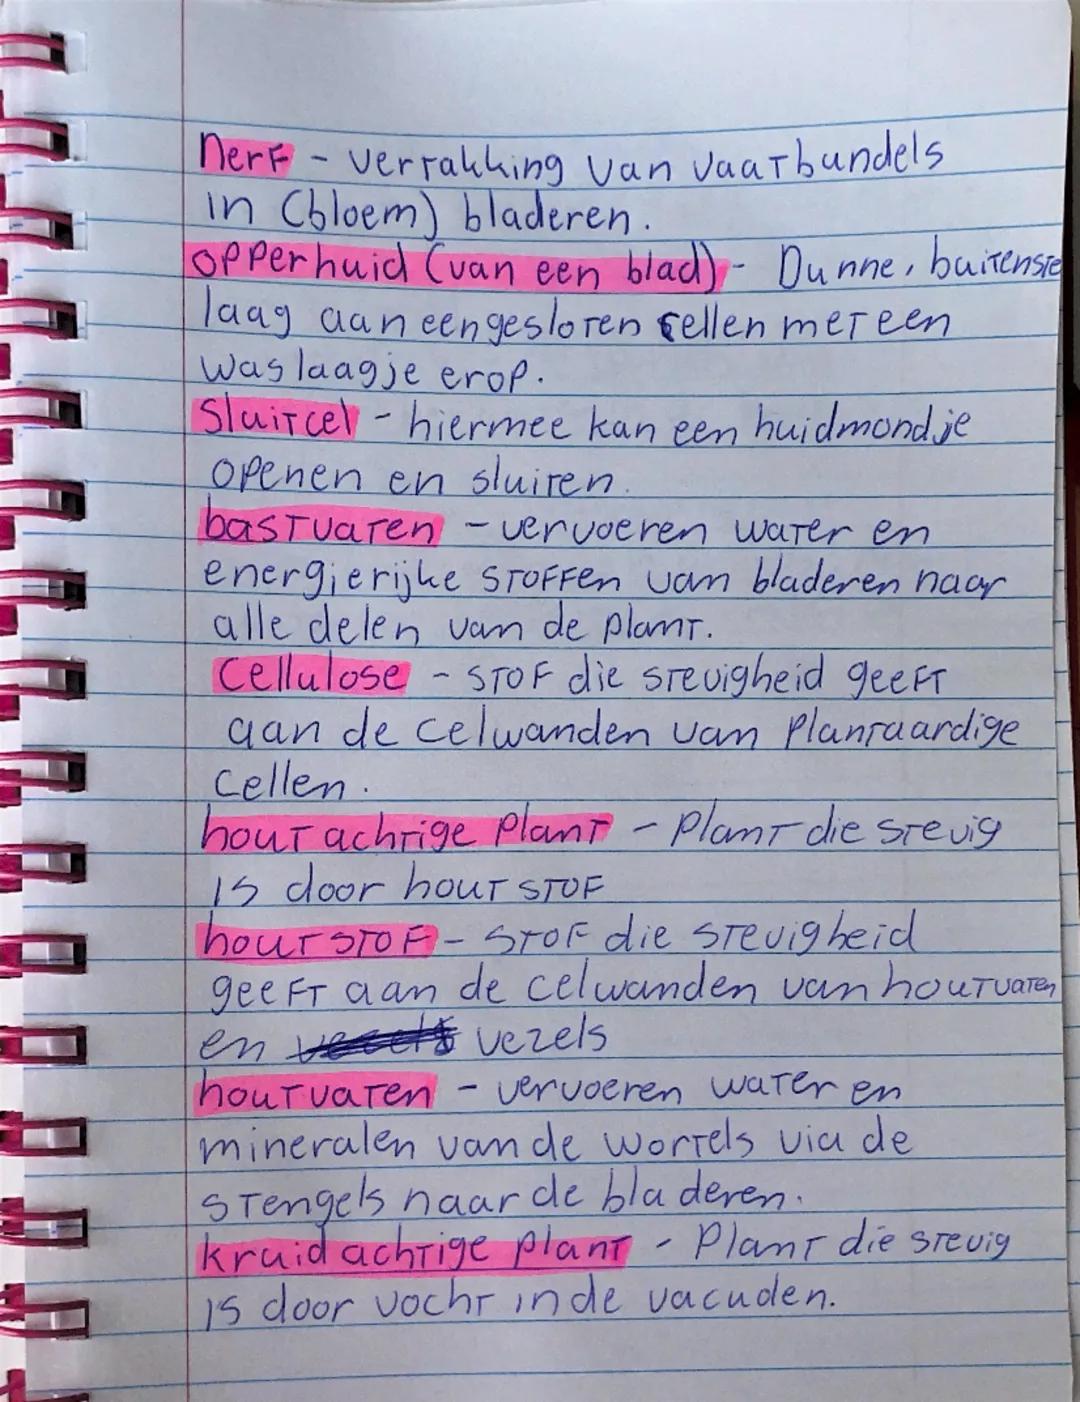 nerf - vertakking van vaatbundels
in (bloem) bladeren.
opperhuid (van een blad) - Dunne, buitenste
laag aaneengesloten cellen met een
waslaagje erop.
Sluitcel - hiermee kan een huidmondje
openen en sluiten.
bastvaten - vervoeren water en
energierijke stoffen van bladeren naar
alle delen van de plant.
Cellulose - stof die stevigheid geeft
aan de celwanden van plantaardige
cellen.
houtachtige plant - plant die stevig
is door houtstof
houtstof - stof die stevigheid
geeft aan de celwanden van houtvaten
en vezels
houtvaten - vervoeren water en
mineralen van de wortels via de
stengels naar de bladeren.
kruidachtige plant - Plant die stevig
is door vocht in de vacuden.